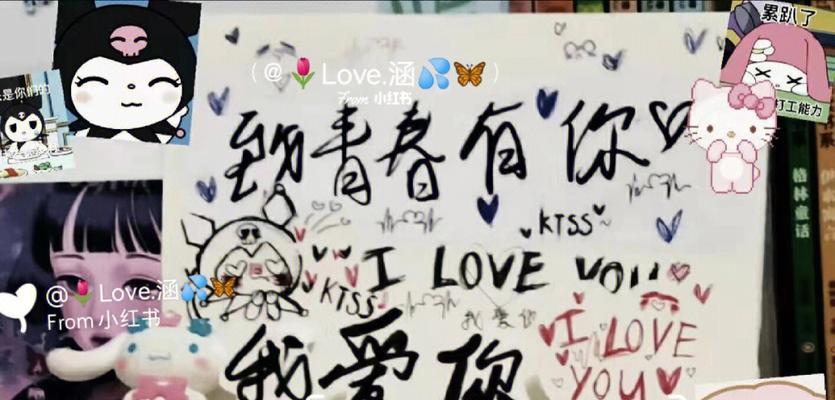 累趴了
打工能力
是你们的
(@🌷Love.涵💦🦋)
From 小红书
致青春有你
格林童话
KISS~
I LOVE YOU
KISS
@🌷Love.涵💦🦋
From 小红书
我爱你
I LOVE
YOU
我爱你